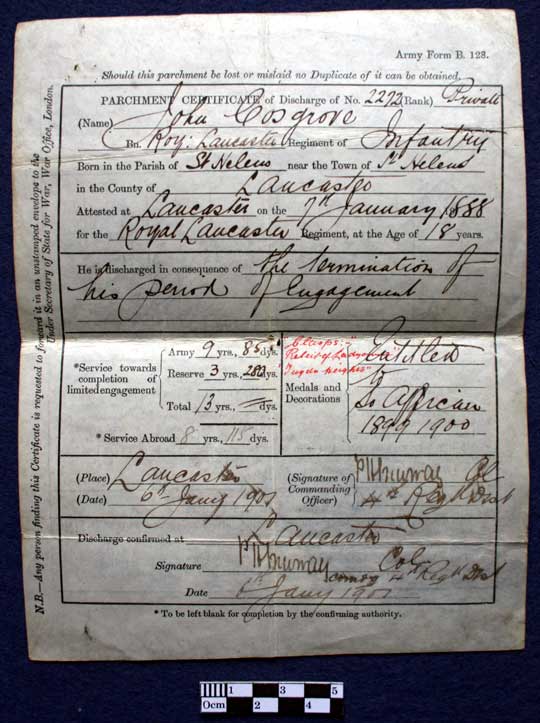 Army Form B. 128.
Should this parchment be lost or mislaid no Duplicate of it can be obtained.
PARCHMENT CERTIFICATE of Discharge of No. 2292 (Rank) Private
(Name) John Cosgrove
Bn. Roy: Lancaster Regiment of Infantry
Born in the Parish of St Helens near the Town of St Helens
in the County of Lancaster
Attested at Lancaster on the 7th January 1888
for the Royal Lancaster Regiment, at the Age of 18 years.
He is discharged in consequence of the termination of
his period of Engagement
*Service towards completion of limited engagement
Army 9 yrs., 85 dys.
Reserve 3 yrs., 280 dys.
Total 13 yrs., dys.
* Service Abroad 8 yrs., 115 dys.
Clasps:-
Relief of Ladysmith
Tugela Heights"
Medals and Decorations
Entitled
to
So African
1899 1900
(Place) Lancaster
(Date) 6th Jany 1901
(Signature of Commanding Officer)
Murray Col
4th Regtl Dist
Discharge confirmed at Lancaster
Signature Murray Col
comdg 4th Regtl Dist
Date 6th Jany 1901
* To be left blank for completion by the confirming authority.
N.B.—Any person finding this Certificate is requested to forward it in an unstamped envelope to the
Under Secretary of State for War, War Office, London.
0cm 1 2 3 4 5